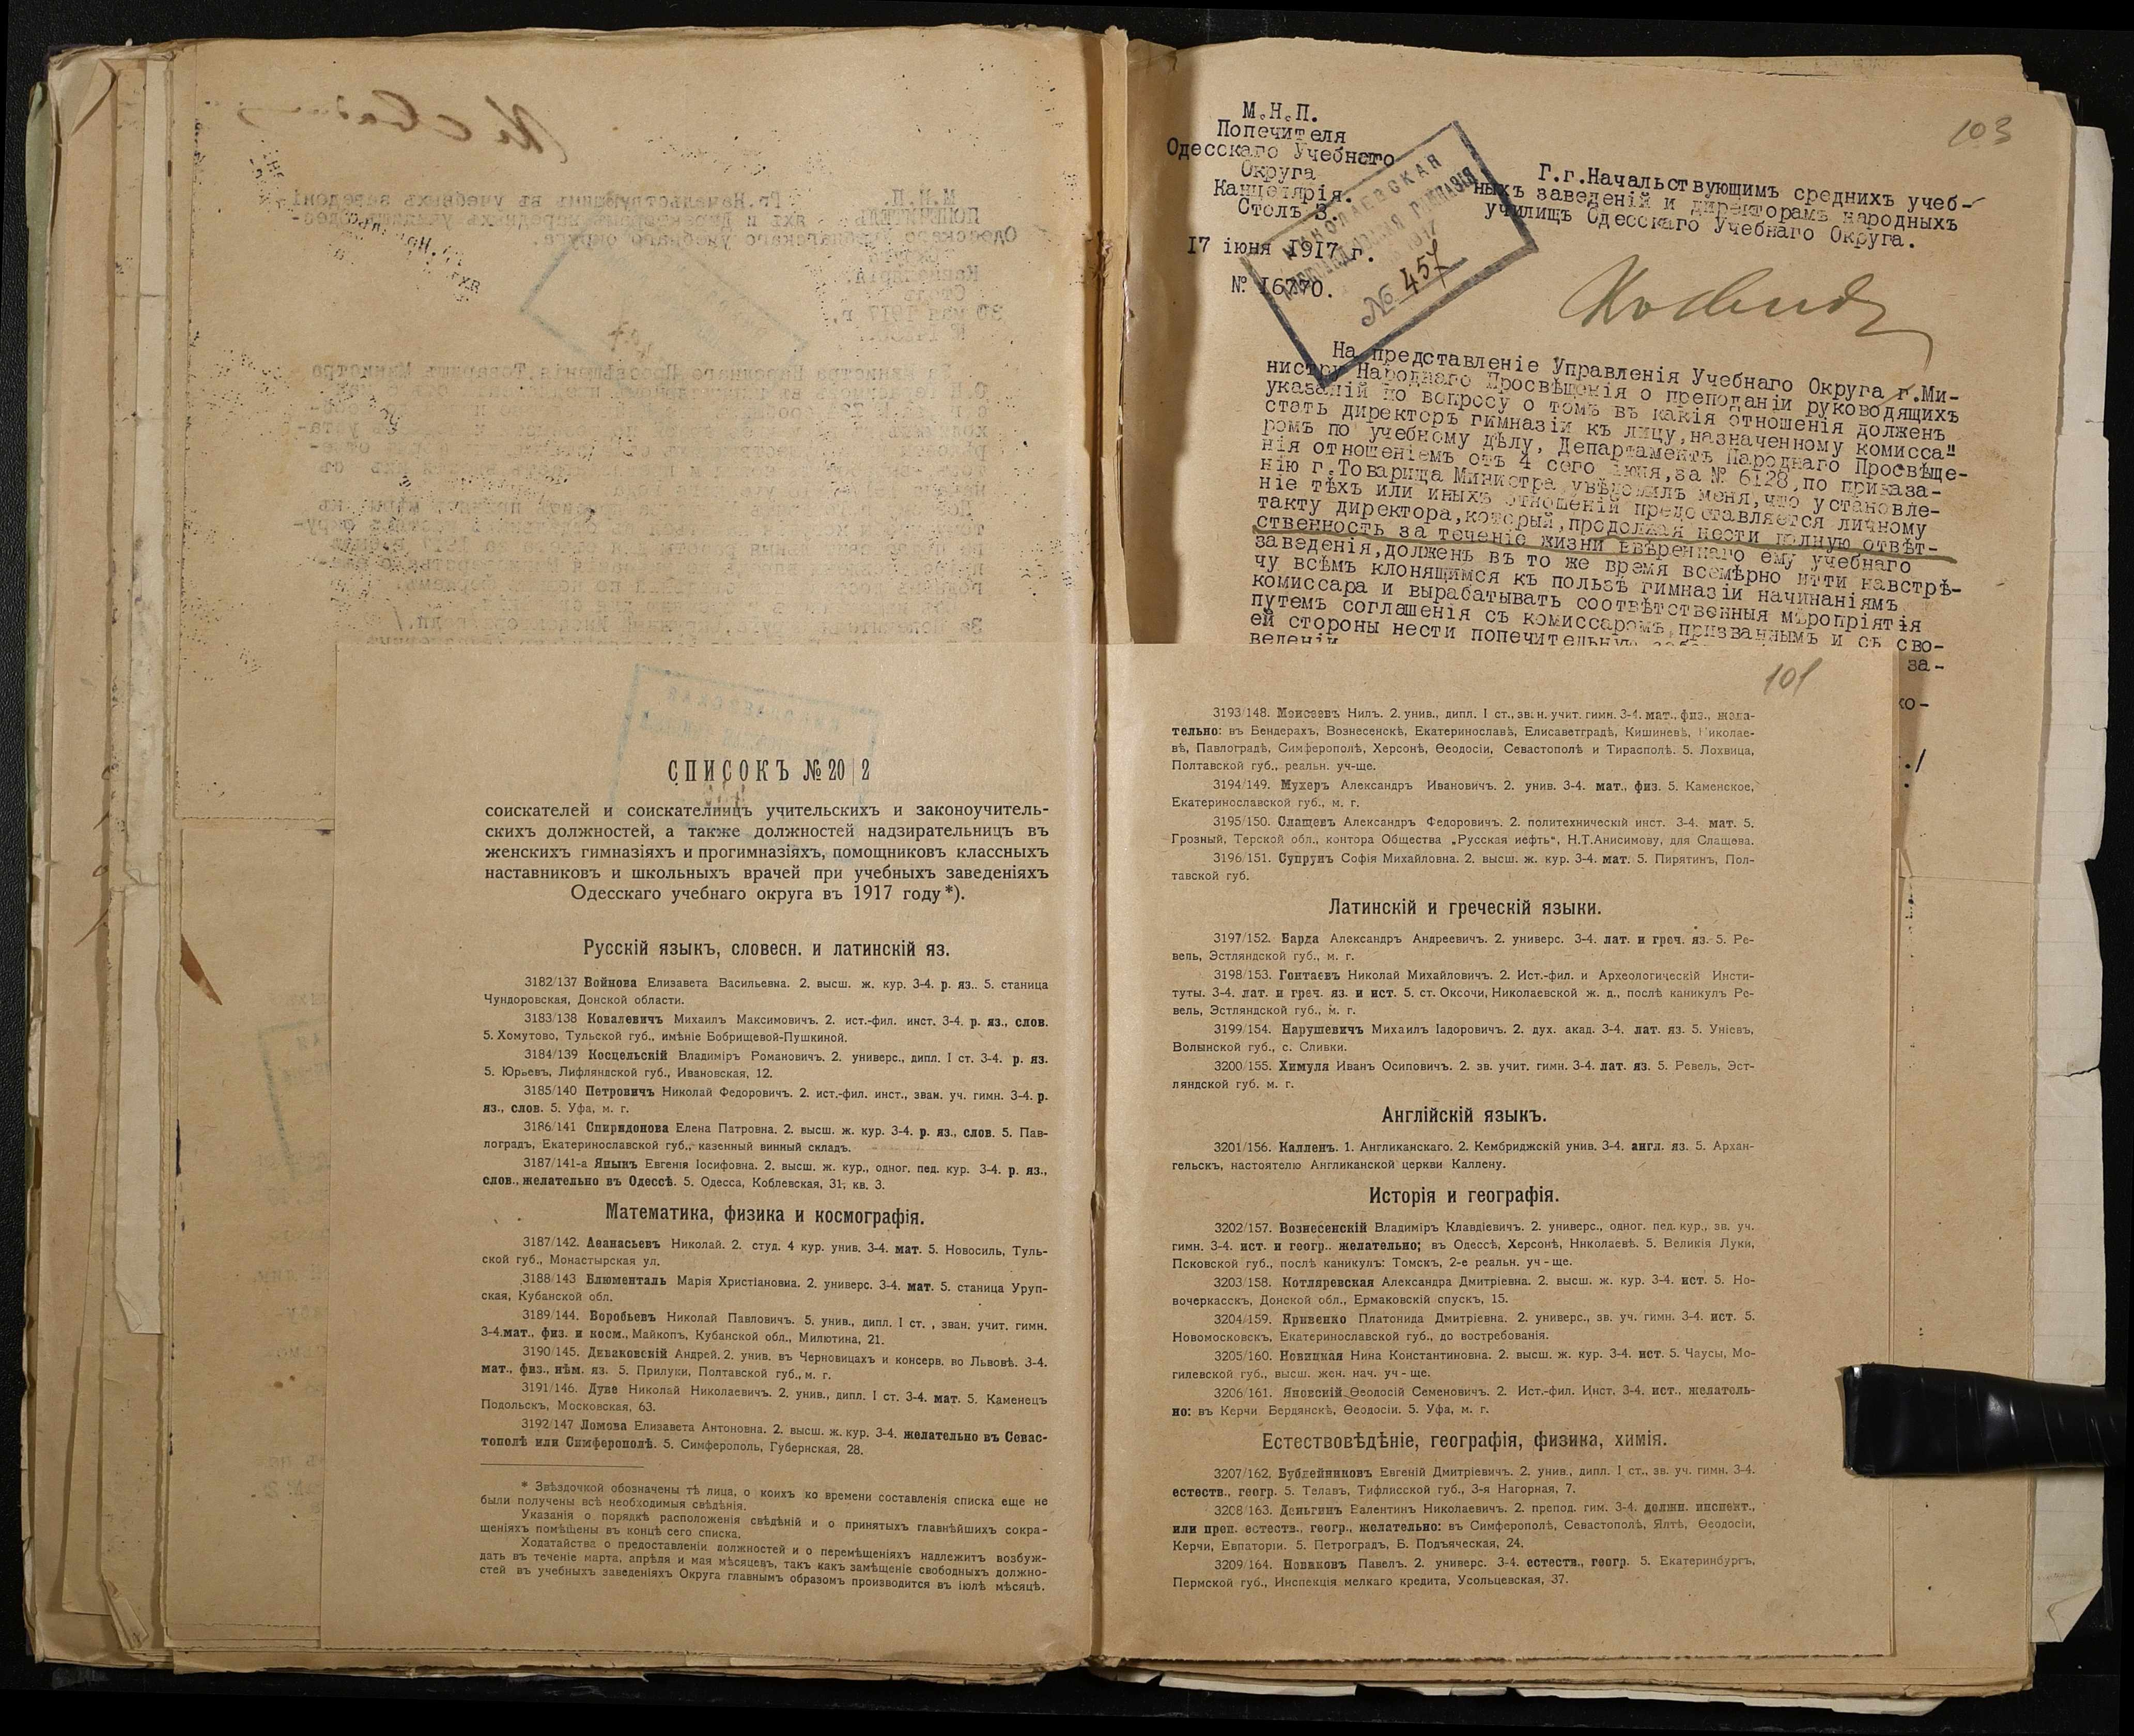 103
М.Н.П.
Попечителя
Одесскаго Учебнаго
Округа
Канцелярія.
Столъ 3.
17 іюня 1917 г.
№ 16770.
НИКОЛАЕВСКАЯ
ГИМНАЗІЯ
1917
№ 457
Г.г.Начальствующимъ среднихъ учеб-
ныхъ заведеній и директорамъ народныхъ
училищъ Одесскаго Учебнаго Округа.
На представленіе Управленія Учебнаго Округа г.Ми-
нистру Народнаго Просвѣщенія о преподаніи руководящихъ
указаній по вопросу о томъ въ какія отношенія долженъ
стать директоръ гимназіи къ лицу,назначенному комисса"
ромъ по учебному дѣлу, Департаментъ Народнаго Просвѣще-
нія отношеніемъ отъ 4 сего іюня,за № 6128,по приказа-
нію г.Товарища Министра увѣдомилъ меня,что установле-
ніе тѣхъ или иныхъ отношеній предоставляется личному
такту директора,который,продолжая нести полную отвѣт-
ственность за теченіе жизни ввѣреннаго ему учебнаго
заведенія,долженъ въ то же время всемѣрно итти навстрѣ-
чу всѣмъ клонящимся къ пользѣ гимназіи начинаніямъ
комиссара и вырабатывать соотвѣтственныя мѣропріятія
путемъ соглашенія съ комиссаромъ,призваннымъ и съ сво-
ей стороны нести попечительную
за-
веденіи
СПИСОКЪ № 20|2
соискателей и соискательницъ учительскихъ и законоучитель-
скихъ должностей, а также должностей надзирательницъ въ
женскихъ гимназіяхъ и прогимназіяхъ, помощниковъ классныхъ
наставниковъ и школьныхъ врачей при учебныхъ заведеніяхъ
Одесскаго учебнаго округа въ 1917 году*).
Русскій языкъ, словесн. и латинскій яз.
3182/137 Войнова Елизавета Васильевна. 2. высш. ж. кур. 3-4. р. яз.. 5. станица
Чундоровская, Донской области.
3183/138 Ковалевичъ Михаилъ Максимовичъ. 2. ист.-фил. инст. 3-4. р. яз., слов.
5. Хомутово, Тульской губ., имѣніе Бобрищевой-Пушкиной.
3184/139 Косцельскій Владиміръ Романовичъ. 2. универс., дипл. I ст. 3-4. р. яз.
5. Юрьевъ, Лифляндской губ., Ивановская, 12.
3185/140 Петровичъ Николай Федоровичъ. 2. ист.-фил. инст., зван. уч. гимн. 3-4. р.
яз., слов. 5. Уфа, м. г.
3186/141 Спиридонова Елена Патровна. 2. высш. ж. кур. 3-4. р. яз., слов. 5. Пав-
лоградъ, Екатеринославской губ., казенный винный складъ.
3187/141-а Яныкъ Евгенія Іосифовна. 2. высш. ж. кур., одног. пед. кур. 3-4. р. яз.,
слов., желательно въ Одессѣ. 5. Одесса, Коблевская, 31, кв. 3.
Математика, физика и космографія.
3187/142. Аѳанасьевъ Николай. 2. студ. 4 кур. унив. 3-4. мат. 5. Новосиль, Туль-
ской губ., Монастырская ул.
3188/143 Блюменталь Марія Христіановна. 2. универс. 3-4. мат. 5. станица Уруп-
ская, Кубанской обл.
3189/144. Воробьевъ Николай Павловичъ. 5. унив., дипл. I ст. , зван. учит. гимн.
3-4.мат., физ. и косм., Майкопъ, Кубанской обл., Милютина, 21.
3190/145. Диваковскій Андрей. 2. унив. въ Черновицахъ и консерв. во Львовѣ. 3-4.
мат., физ., нѣм. яз. 5. Прилуки, Полтавской губ., м. г.
3191/146. Дуве Николай Николаевичъ. 2. унив., дипл. I ст. 3-4. мат. 5. Каменецъ
Подольскъ, Московская, 63.
3192/147 Ломова Елизавета Антоновна. 2. высш. ж. кур. 3-4. желательно въ Севас-
тополѣ или Симферополѣ. 5. Симферополь, Губернская, 28.
* Звѣздочкой обозначены тѣ лица, о коихъ ко времени составленія списка еще не
были получены всѣ необходимыя свѣдѣнія.
Указанія о порядкѣ расположенія свѣдѣній и о принятыхъ главнѣйшихъ сокра-
щеніяхъ помѣщены въ концѣ сего списка.
Ходатайства о предоставленіи должностей и о перемѣщеніяхъ надлежитъ возбуж-
дать въ теченіе марта, апрѣля и мая мѣсяцевъ, такъ какъ замѣщеніе свободныхъ должно-
стей въ учебныхъ заведеніяхъ Округа главнымъ образомъ производится въ іюлѣ мѣсяцѣ.
101
3193/148. Моисеевъ Нилъ. 2. унив., дипл. I ст., зв. н. учит. гимн. 3-4. мат., физ., жела-
тельно: въ Бендерахъ, Вознесенскѣ, Екатеринославѣ, Елисаветградѣ, Кишиневѣ, Николае-
вѣ, Павлоградѣ, Симферополѣ, Херсонѣ, Ѳеодосіи, Севастополѣ и Тирасполѣ. 5. Лохвица,
Полтавской губ., реальн. уч-ще.
3194/149. Мухеръ Александръ Ивановичъ. 2. унив. 3-4. мат., физ. 5. Каменское,
Екатеринославской губ., м. г.
3195/150. Слащевъ Александръ Федоровичъ. 2. политехническій инст. 3-4. мат. 5.
Грозный, Терской обл., контора Общества „Русская нефть“, Н.Т.Анисимову, для Слащева.
3196/151. Супрунъ Софія Михайловна. 2. высш. ж. кур. 3-4. мат. 5. Пирятинъ, Пол-
тавской губ.
Латинскій и греческій языки.
3197/152. Барда Александръ Андреевичъ. 2. универс. 3-4. лат. и греч. яз. 5. Ре-
вель, Эстляндской губ., м. г.
3198/153. Гонтаевъ Николай Михайловичъ. 2. Ист.-фил. и Археологическій Инсти-
туты. 3-4. лат. и греч. яз. и ист. 5. ст. Оксочи, Николаевской ж. д., послѣ каникулъ Ре-
вель, Эстляндской губ., м. г.
3199/154. Нарушевичъ Михаилъ Іадоровичъ. 2. дух. акад. 3-4. лат. яз. 5. Уніевъ,
Волынской губ., с. Сливки.
3200/155. Химуля Иванъ Осиповичъ. 2. зв. учит. гимн. 3-4. лат. яз. 5. Ревель, Эст-
ляндской губ. м. г.
Англійскій языкъ.
3201/156. Калленъ. 1. Англиканскаго. 2. Кембриджскій унив. 3-4. англ. яз. 5. Архан-
гельскъ, настоятелю Англиканской церкви Каллену.
Исторія и географія.
3202/157. Вознесенскій Владиміръ Клавдіевичъ. 2. универс., одног. пед. кур., зв. уч.
гимн. 3-4. ист. и геогр.. желательно; въ Одессѣ, Херсонѣ, Николаевѣ. 5. Великія Луки,
Псковской губ., послѣ каникулъ: Томскъ, 2-е реальн. уч-ще.
3203/158. Котляревская Александра Дмитріевна. 2. высш. ж. кур. 3-4. ист. 5. Но-
вочеркасскъ, Донской обл., Ермаковскій спускъ, 15.
3204/159. Кривенко Платонида Дмитріевна. 2. универс., зв. уч. гимн. 3-4. ист. 5.
Новомосковскъ, Екатеринославской губ., до востребованія.
3205/160. Новицкая Нина Константиновна. 2. высш. ж. кур. 3-4. ист. 5. Чаусы, Мо-
гилевской губ., высш. жен. нач. уч-ще.
3206/161. Яновскій Ѳеодосій Семеновичъ. 2. Ист.-фил. Инст. 3-4. ист., желатель-
но: въ Керчи Бердянскѣ, Ѳеодосіи. 5. Уфа, м. г.
Естествовѣдѣніе, географія, физика, химія.
3207/162. Бублейниковъ Евгеній Дмитріевичъ. 2. унив., дипл. I ст., зв. уч. гимн. 3-4.
естеств., геогр. 5. Телавъ, Тифлисской губ., 3-я Нагорная, 7.
3208/163. Деньгинъ Валентинъ Николаевичъ. 2. препод. гим. 3-4. должн. инспект.,
или преп. естеств., геогр., желательно: въ Симферополѣ, Севастополѣ, Ялтѣ, Ѳеодосіи,
Керчи, Евпаторіи. 5. Петроградъ, Б. Подъяческая, 24.
3209/164. Новаковъ Павелъ. 2. универс. 3-4. естеств., геогр. 5. Екатеринбургъ,
Пермской губ., Инспекція мелкаго кредита, Усольцевская, 37.